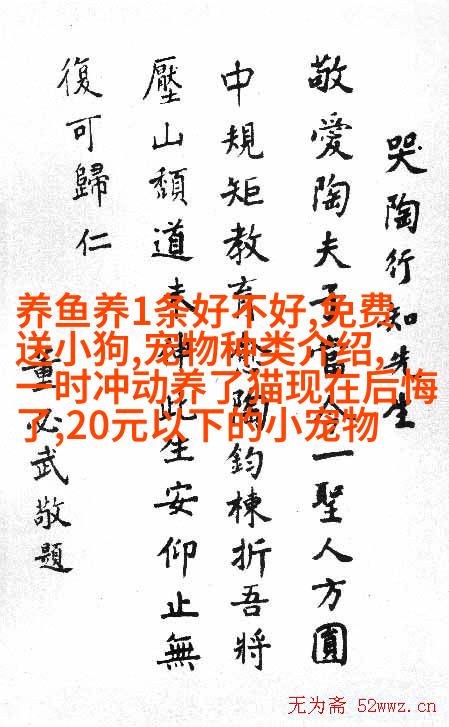 哭陶行知先生
敬愛陶夫子當今一聖人方圓
中規矩教育陶鈞棟折吾將
壓山頹道未伸此生安仰止無
復可歸仁
董必武敬題
养鱼养1条好不好,免费
送小狗,宠物种类介绍,
一时冲动养了猫现在后悔
了,20元以下的小宠物
无为斋 52wwz.cn